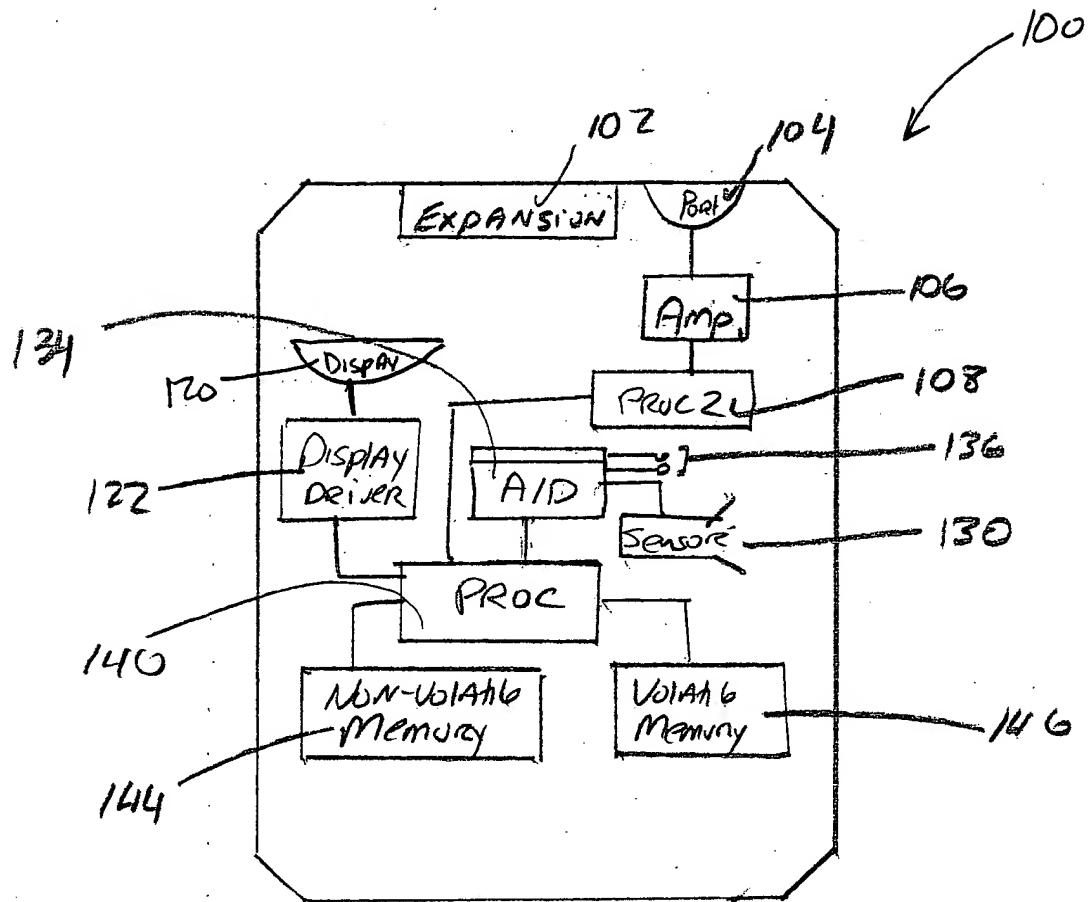 100
102
104
EXPANSION
Port
Amp.
106
134
DISPLAY
120
PROC 2
108
Display
Driver
122
A/D
136
Sensors
130
PROC
140
NON-VOLATILE
Memory
144
VOLATILE
Memory
146